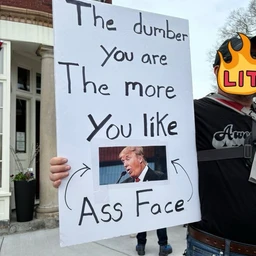 The dumber
you are
The more
you like
Ass Face
LIT